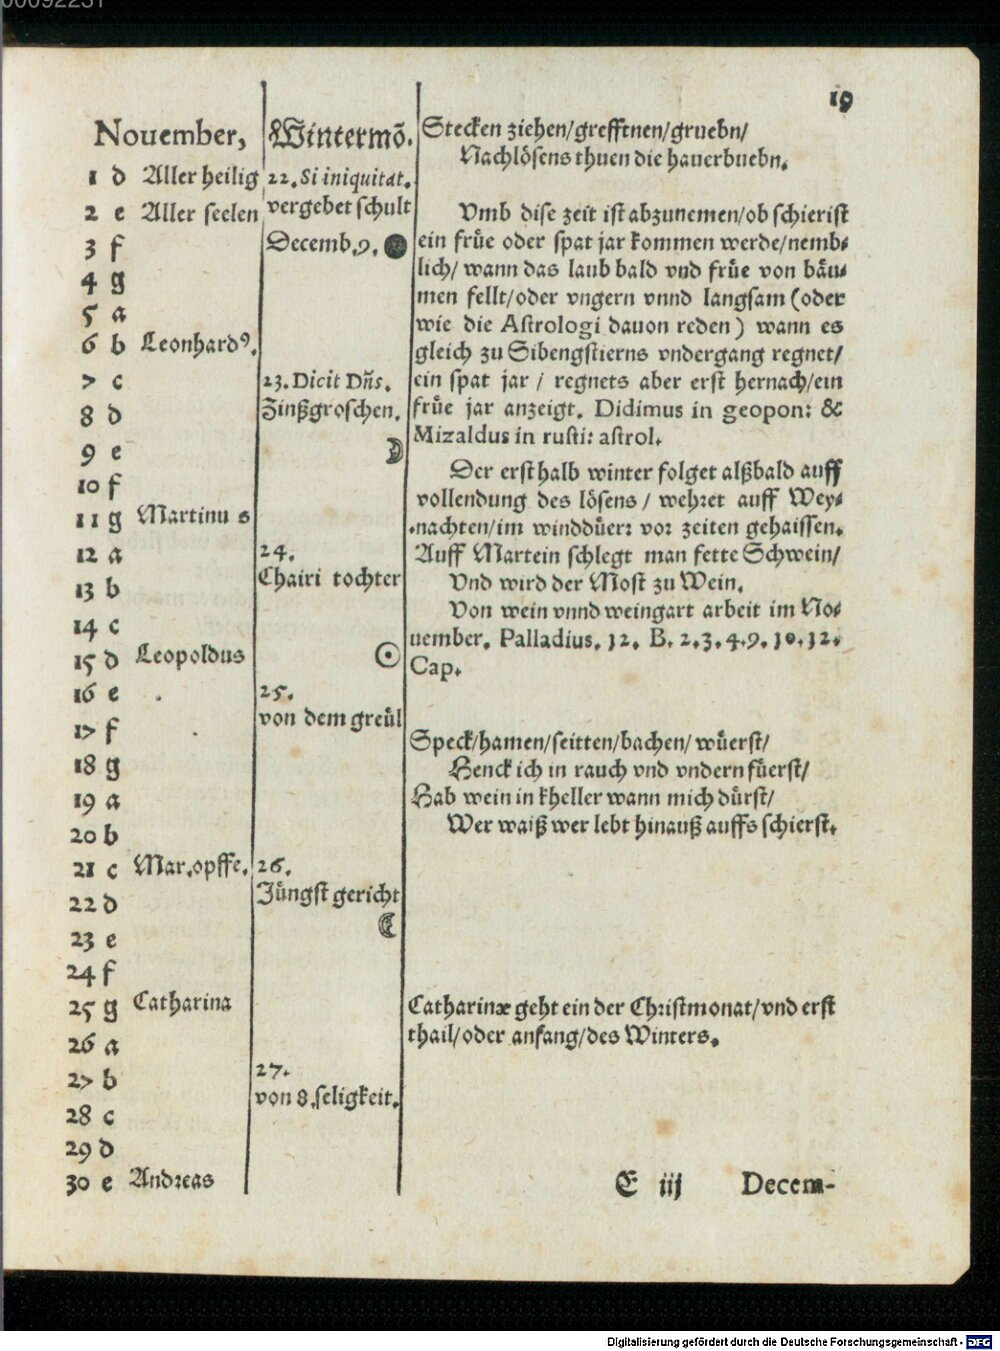 19
Nouember,
Wintermō.
1 d Aller heilig
2 e Aller seelen
3 f
4 g
5 a
6 b Leonhardꝰ.
7 c
8 d
9 e
10 f
11 g Martinus
12 a
13 b
14 c
15 d Leopoldus
16 e
17 f
18 g
19 a
20 b
21 c Mar.opffe.
22 d
23 e
24 f
25 g Catharina
26 a
27 b
28 c
29 d
30 e Andreas
22. Si iniquitat.
vergebet schult
Decemb.9.
23. Dicit Dñs.
Zinßgroschen.
24.
Chairi tochter
25.
von dem greül
26.
Jüngst gericht
27.
von 8. seligkeit.
Stecken ziehen/grefftnen/gruebn/
Nachlösens thuen die hauerbuebn.
Vmb dise zeit ist abzunemen/ob schierist
ein früe oder spat jar kommen werde/nemb-
lich/ wann das laub bald vnd früe von bäu-
men fellt/oder vngern vnnd langsam (oder
wie die Astrologi dauon reden) wann es
gleich zu Sibengstierns vndergang regnet/
ein spat jar / regnets aber erst hernach/ein
früe jar anzeigt. Didimus in geopon: &
Mizaldus in rusti: astrol.
Der erst halb winter folget alßbald auff
vollendung des lösens / wehret auff Wey-
nachten/im winddüerr vor zeiten gehaissen.
Auff Martein schlegt man fette Schwein/
Vnd wird der Most zu Wein.
Von wein vnnd weingart arbeit im No-
uember. Palladius. 12. B. 2.3.4.9.10.12.
Cap.
Speck/hamen/seitten/bachen/ wüerst/
Henck ich in rauch vnd vndern füerst/
Hab wein in kheller wann mich dürst/
Wer waiß wer lebt hinauß auffs schierst.
Catharinæ geht ein der Christmonat/vnd erst
thail/oder anfang/des Winters.
E iij Decem-
Digitalisierung gefördert durch die Deutsche Forschungsgemeinschaft - DFG